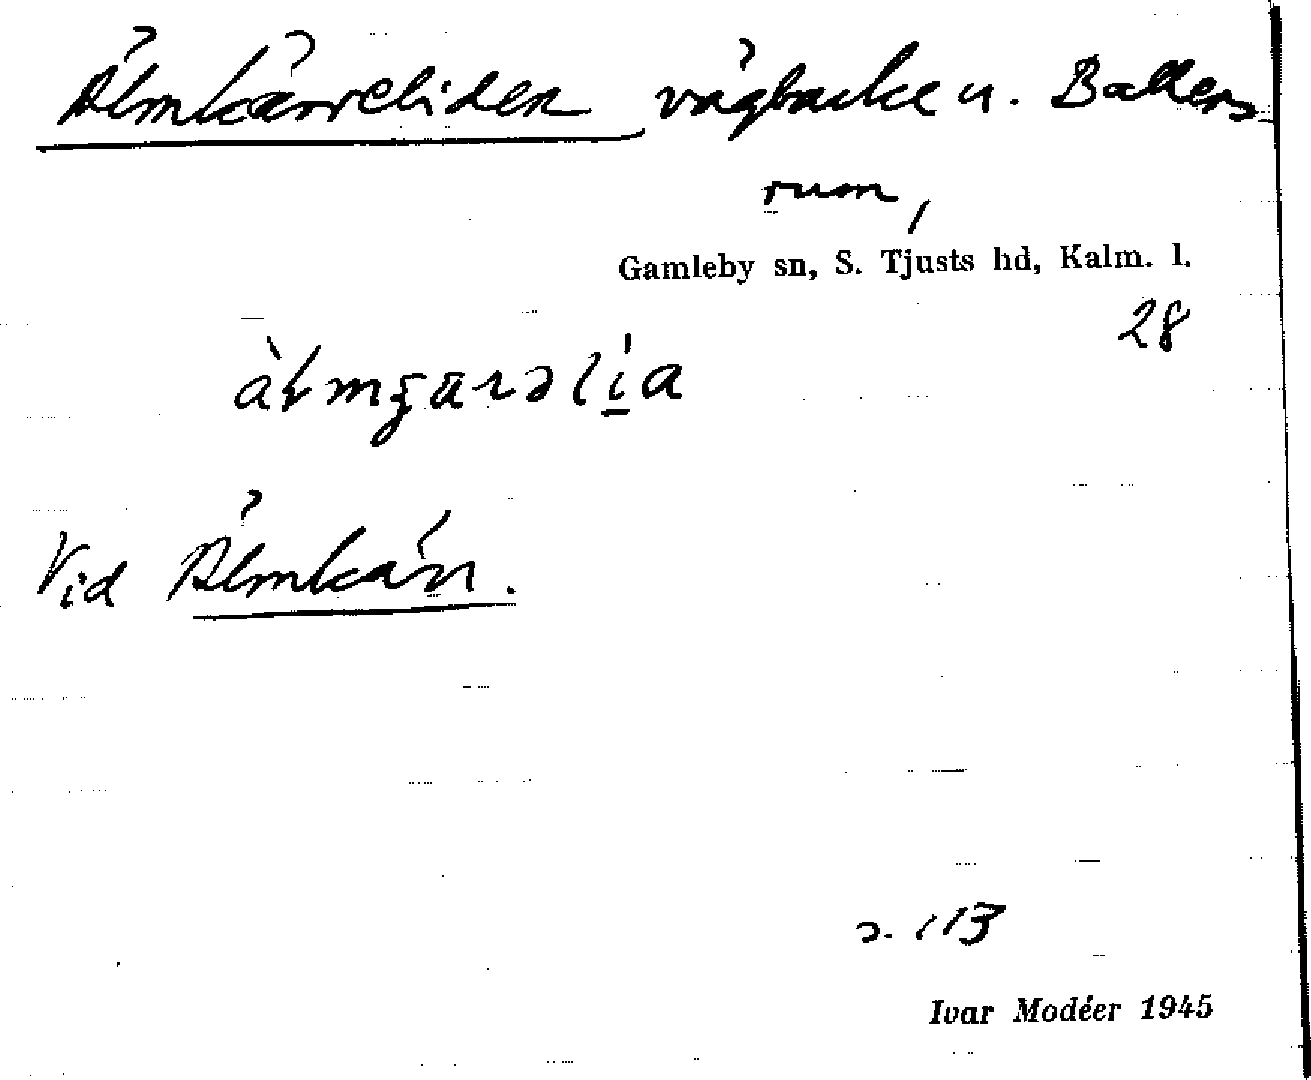 Älmkärreliden vägbacke u. Ballers
rum,
Gamleby sn, S. Tjusts hd, Kalm. l.
28
Vid Älmkärr.
s. 113
Ivar Modéer 1945